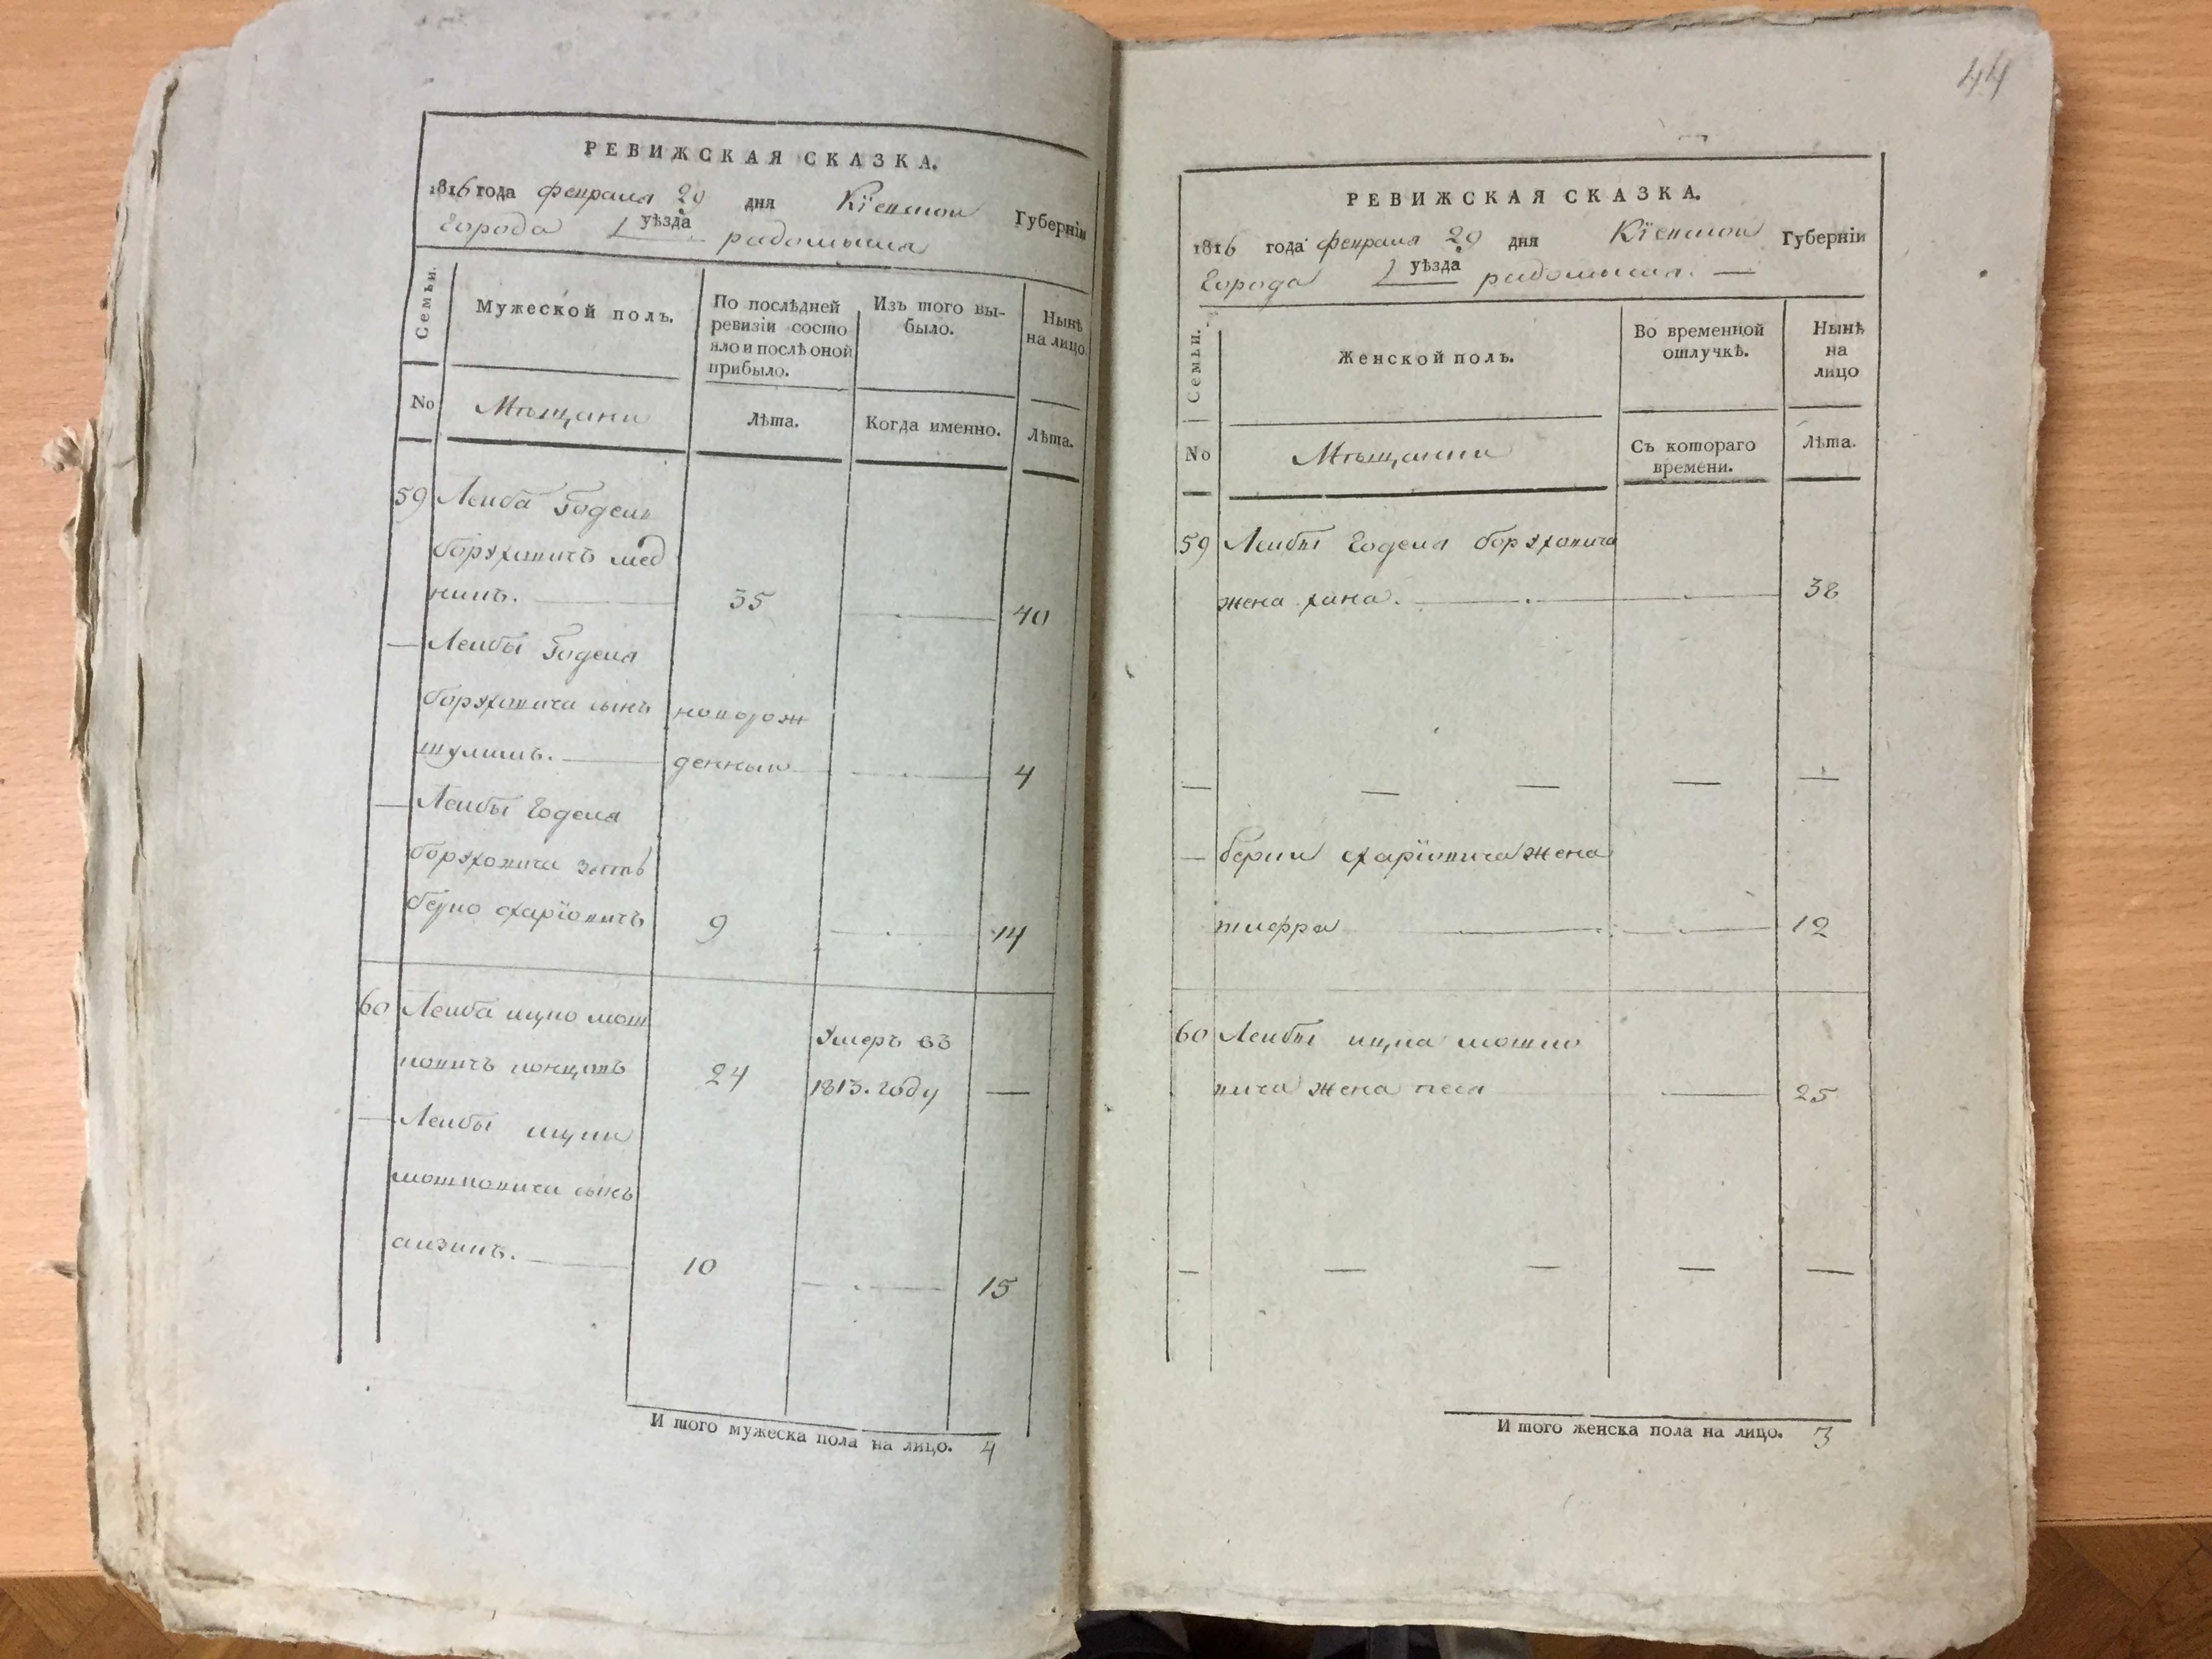 РЕВИЖСКАЯ СКАЗКА.
1816 года февраля 29 дня Кіевской Губерніи
Города уѣзда радомысля
Семьи.
Мужеской полъ.
По послѣдней
ревизіи состо
яло и послѣ оной
прибыло.
Изъ того вы-
было.
Нынѣ
на лицо.
No
Мѣщани
Лѣта.
Когда именно.
Лѣта.
59 Лейба Годель
борухович
35 40
— Лейбы Годеля
боруховича сынъ новорож
шулимъ. денный 4
— Лейбы Годеля
боруховича зять
берко
9 14
60 Лейба ицко мош
ковичъ умеръ въ
24 1813. году —
— Лейбы ицки
мошковича сынъ
айзикъ.
10 15
И того мужеска пола на лицо. 4
44
РЕВИЖСКАЯ СКАЗКА.
1816 года февраля 29 дня Кіевской Губерніи
Города уѣзда радомысля. —
Семьи.
Женской полъ.
Во временной
отлучкѣ.
Нынѣ
на
лицо
No
Мѣщански
Съ котораго
времени.
Лѣта.
59 Лейбы Годеля боруховича
жена хана. 38
— — — — —
— берки жена
12
60 Лейбы ицка мошко
вича жена песя 25
— — — — —
И того женска пола на лицо. 3